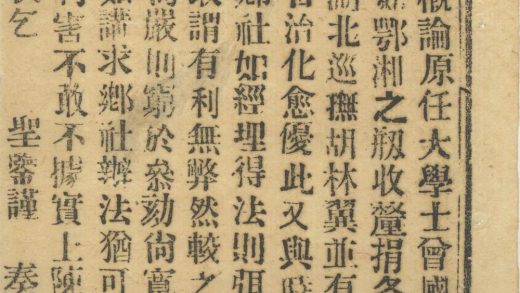 概論原任大學士曾國
鄂湘之剏收釐捐各
湖北巡撫胡林翼並有
治化愈優此又與
鄉社如經理得法則弭
謂有利無弊然較之
嚴則窮於叅劾尙寬
如講求鄉社辦法猶可
害不敢不據實上陳
乞 聖鑒謹 奏